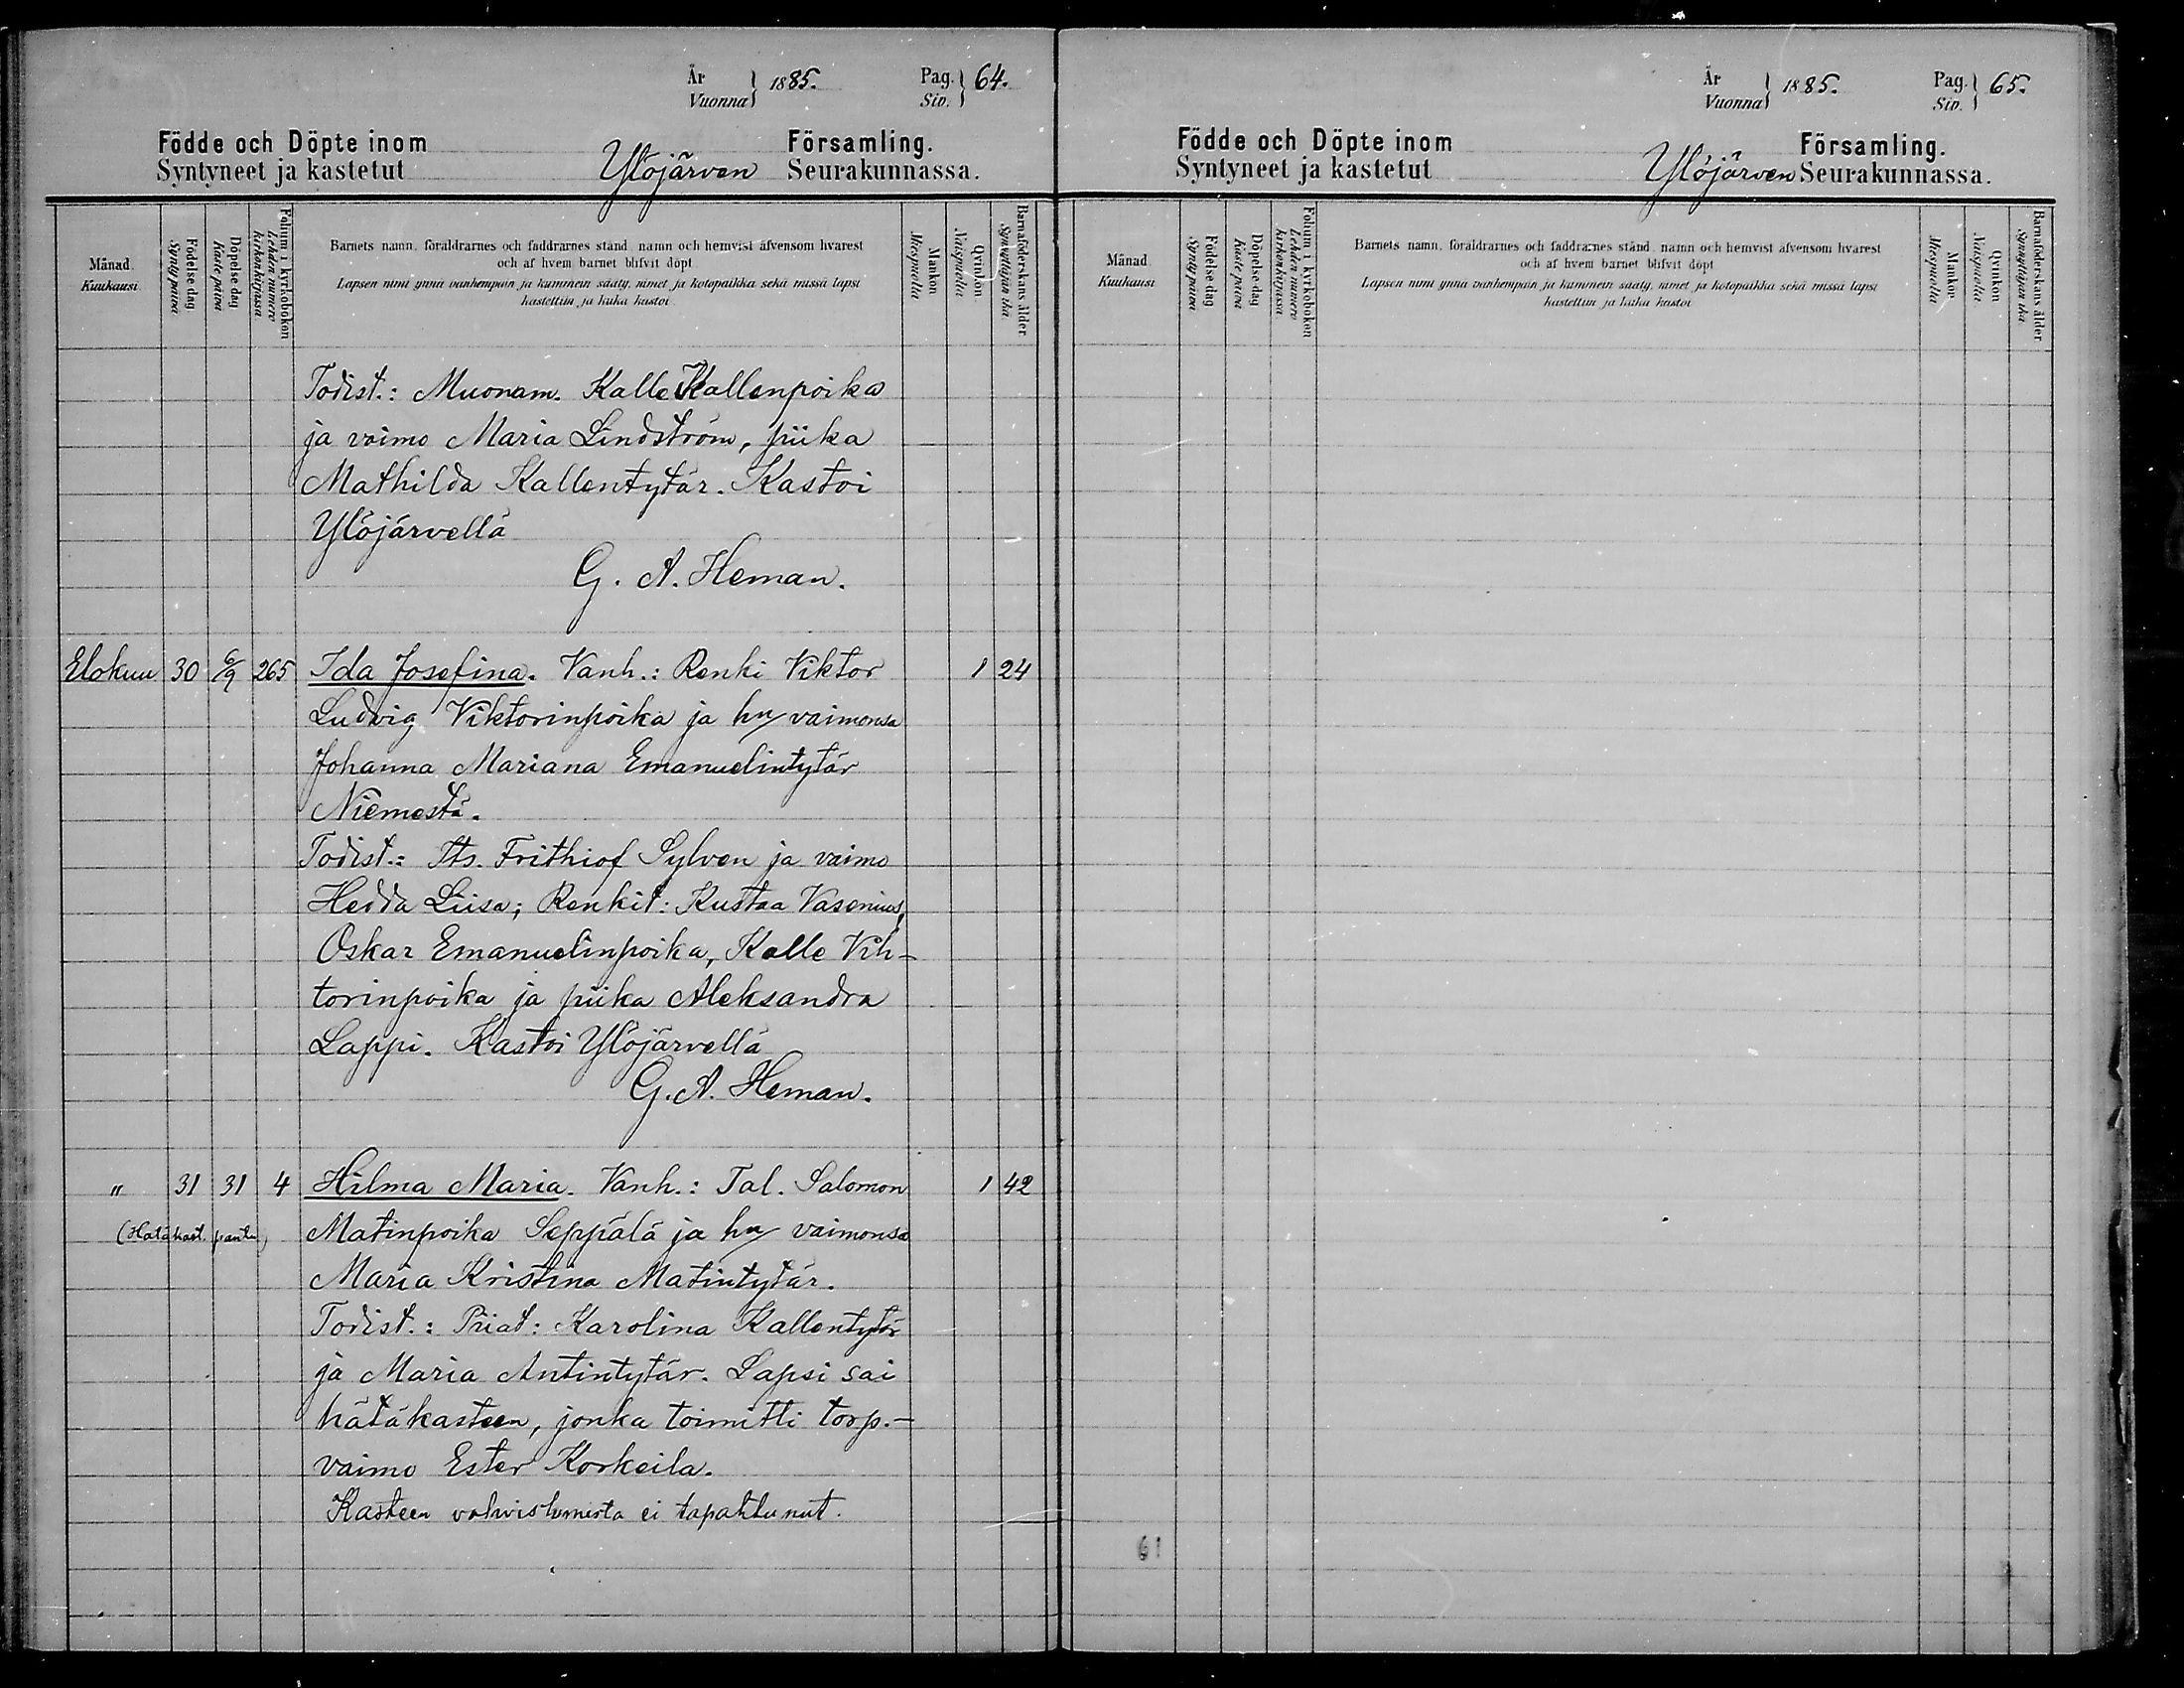 År
Vuonna } 1885. Pag.
Siv. } 64.
Födde och Döpte inom Församling.
Syntyneet ja kastetut Ylöjärven Seurakunnassa.
Månad
Kuukausi
Födelse dag
Synty päivä
Döpelse dag
Kaste päivä
Folium i kyrkoboken
Lehden numero
kirkonkirjassa
Barnets namn, föräldrarnes och faddrarnes stånd, namn och hemvist äfvensom hvarest
och af hvem barnet blifvit döpt
Lapsen nimi ynnä vanhempain ja kummein sääty, nimet ja kotopaikka sekä missä lapsi
kastettiin ja kuka kastoi
Mankön
Miespuolia
Qvinkön
Naispuolia
Barnaföderskans ålder
Synnyttäjän ikä
Todist.: Muonam. Kalle Kallenpoika
ja vaimo Maria Lindström, piika
Mathilda Kallentytär. Kastoi
Ylöjärvellä
G. A. Heman.
Elokuu 30 6/9 265 Ida Josefina. Vanh.: Renki Viktor 1 24
Ludvig Viktorinpoika ja hn vaimonsa
Johanna Mariana Emanuelintytär
Niemestä.
Todist.: Its. Frithiof Sylven ja vaimo
Hedda Liisa; Renkit: Kustaa Vasenius,
Oskar Emanuelinpoika, Kalle Vih-
torinpoika ja piika Aleksandra
Lappi. Kastoi Ylöjärvellä
G. A. Heman.
" 31 31 4 Hilma Maria. Vanh.: Tal. Salomon 1 42
(Hätäkast. pantu) Matinpoika Seppälä ja hn vaimonsa
Maria Kristina Matintytär.
Todist.: Piiat: Karolina Kallentytär
ja Maria Antintytär. Lapsi sai
hätäkasteen, jonka toimitti torp.-
vaimo Ester Korkeila.
Kasteen vahvistamista ei tapahtunut.
År
Vuonna } 1885. Pag.
Siv. } 65.
Födde och Döpte inom Församling.
Syntyneet ja kastetut Ylöjärven Seurakunnassa.
Månad
Kuukausi
Födelse dag
Synty päivä
Döpelse dag
Kaste päivä
Folium i kyrkoboken
Lehden numero
kirkonkirjassa
Barnets namn, föräldrarnes och faddrarnes stånd, namn och hemvist äfvensom hvarest
och af hvem barnet blifvit döpt
Lapsen nimi ynnä vanhempain ja kummein sääty, nimet ja kotopaikka sekä missä lapsi
kastettiin ja kuka kastoi
Mankön
Miespuolia
Qvinkön
Naispuolia
Barnaföderskans ålder
Synnyttäjän ikä
61